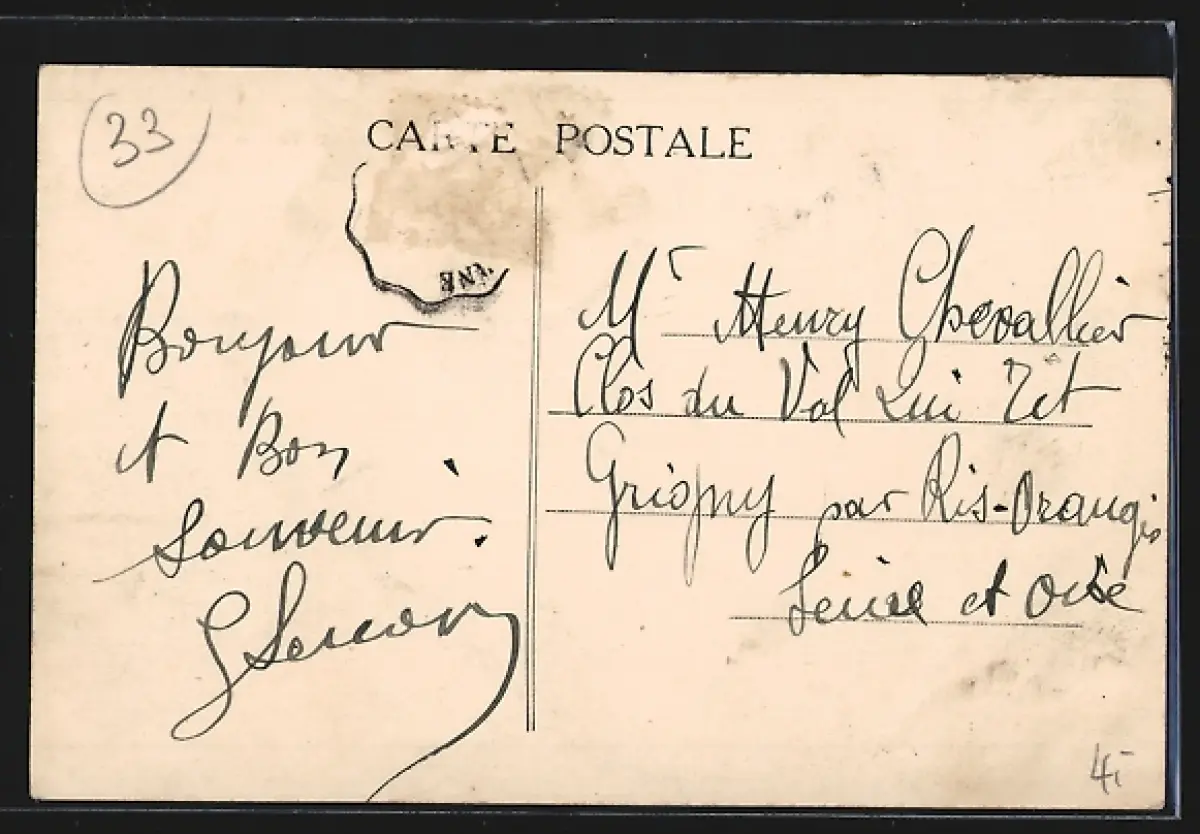 33
CARTE POSTALE
Bonjour
et Bon
Souvenir.
Mr Henry Chevallier
Clos du Val Qui Rit
Grigny par Ris-Orangis
Seine et Oise
4-